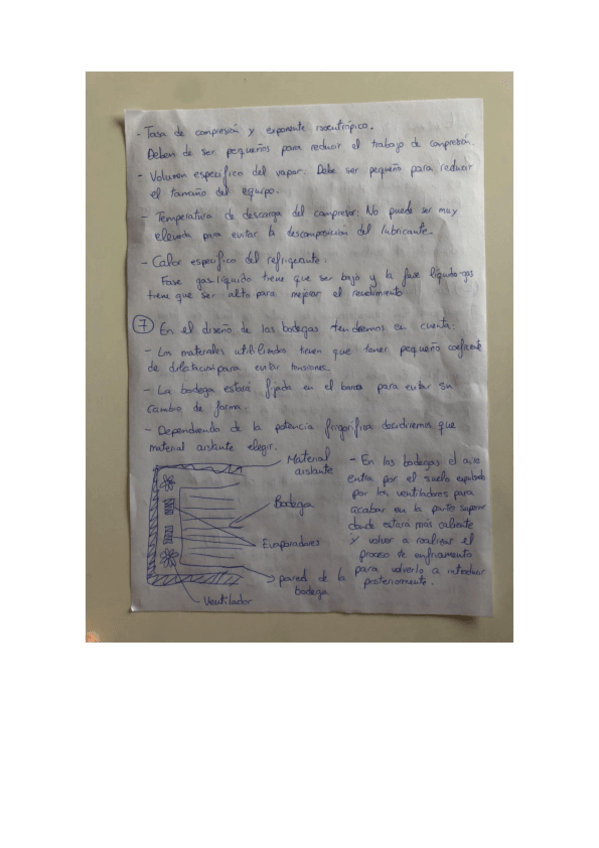 - Tasa de compresión y exponente isoentrópico.
Deben de ser pequeños para reducir el trabajo de compresión.
- Volumen específico del vapor. Debe ser pequeño para reducir
el tamaño del equipo.
- Temperatura de descarga del compresor. No puede ser muy
elevada para evitar la descomposición del lubricante.
- Calor específico del refrigerante.
Fase gas-líquido tiene que ser bajo y la fase líquido-gas
tiene que ser alto para mejorar el rendimiento
7 En el diseño de las bodegas tendremos en cuenta:
- Los materiales utilizados tienen que tener pequeño coeficiente
de dilatación para evitar tensiones.
- La bodega estará fijada en el barco para evitar su
cambio de forma.
- Dependiendo de la potencia frigorífica decidiremos que
material aislante elegir.
Material
aislante
Bodega
Evaporadores
pared de la
bodega
Ventilador
- En las bodegas el aire
entra por el suelo expulsado
por los ventiladores para
acabar en la parte superior
donde estará más caliente
y volver a realizar el
proceso de enfriamiento
para volverlo a introducir
posteriormente.